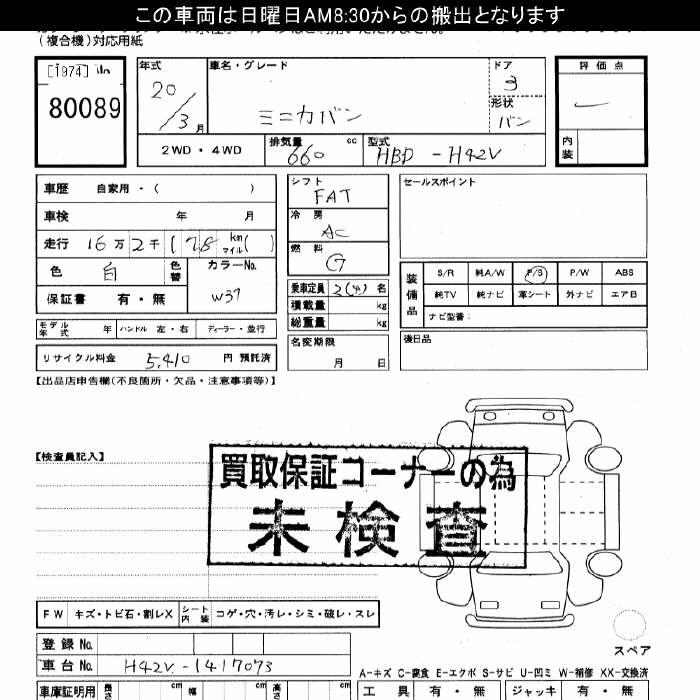 この車両は日曜日AM8:30からの搬出となります
(複合機)対応用紙
[1974]
80089
年式
20/3月
車名・グレード
ミニカバン
ドア
3
形状
バン
評価点
内装
2WD・4WD
排気量
660 cc
型式
HBD-H42V
車歴 自家用・( )
車検 年 月
走行 16万2千178 km マイル( )
色 白 色替
カラーNo.
W37
保証書 有・無
シフト
FAT
冷房
AC
燃料
G
乗車定員 2(4)名
積載量 kg
総重量 kg
セールスポイント
装備品
S/R 純A/W P/S P/W ABS
純TV 純ナビ 革シート 外ナビ エアB
ナビ型番:
モデル年式 年 ハンドル 左・右 ディーラー・並行
リサイクル料金 5,410 円 預託済
名変期限
月 日
後日品
【出品店申告欄(不良箇所・欠品・注意事項等)】
【検査員記入】
買取保証コーナーの為
未検査
FW キズ・トビ石・割レX シート内装 コゲ・穴・汚レ・シミ・破レ・スレ
スペア
登録No.
車台No. H42V-1417073
A-キズ C-腐食 E-エクボ S-サビ U-凹ミ W-補修 XX-交換済
車庫証明用 長さ cm 幅 cm 高さ cm
工具 有・無 ジャッキ 有・無